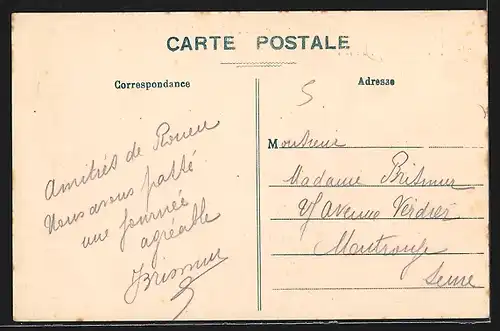 CARTE POSTALE
Correspondance
Adresse
5
Amitiés de Rouen
Nous avons passé
une journée
agréable
Brismur
Monsieur
Madame Brismur
Avenue Verdier
Montrouge
Seine